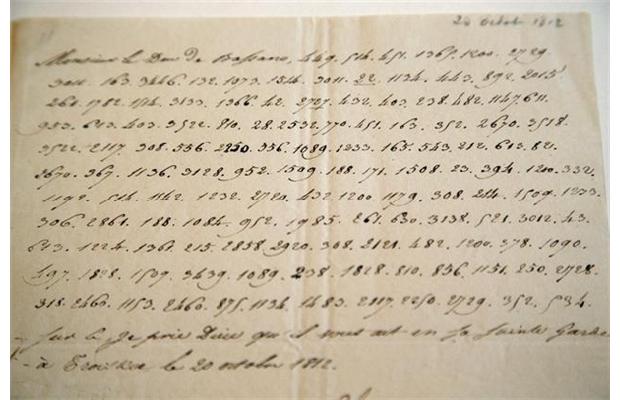 20 octobre 1812
Monsieur le Duc de Bassano, 449. 514. 451. 1365. 1200. 2729.
163. 3446. 132. 1073. 1514. 3011. 22. 1134. 443. 892. 2015.
261. 1782. 3133. 1366. 42. 2727. 432. 403. 238. 482. 1147. 611.
953. 643. 403. 3522. 810. 28. 2532. 770. 451. 163. 352. 2670. 3518.
3522. 2117. 308. 536. 2250. 356. 1089. 1233. 165. 543. 212. 613. 82.
2670. 367. 1136. 3128. 952. 1509. 188. 171. 1508. 23. 394. 1200. 332.
1192. 514. 1542. 1232. 2720. 432. 1200. 1179. 308. 214. 1509. 1233.
306. 2861. 188. 1084. 952. 1985. 261. 630. 3138. 521. 3012. 43.
613. 1224. 1361. 215. 2858. 2920. 308. 2121. 482. 1200. 378. 1090.
497. 1828. 1507. 3439. 1089. 238. 1828. 810. 836. 1151. 250. 2728.
318. 2460. 1153. 2460. 875. 1134. 1483. 2117. 2250. 2729. 352. 534.
Sur ce je prie Dieu qu'il vous ait en sa Sainte Garde
à le 20 octobre 1812.